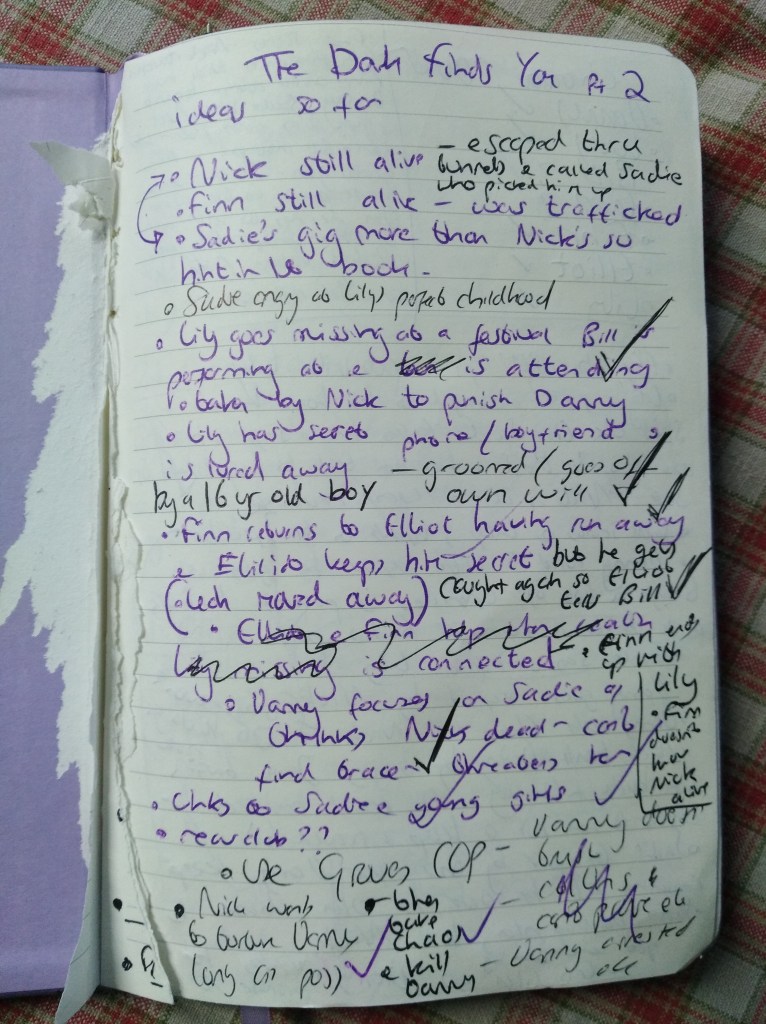 The Dark Finds You Pt 2
ideas so far
• Nick still alive - escaped thru
tunnels & called Sadie
who picked him up
• Finn still alive - was trafficked
• Sadie's gig more than Nick's so
hint in book -
• Sadie angry at Lily's perfect childhood
• Lily goes missing at a festival Bill is
performing at & is attending
• taken by Nick to punish Danny
• Lily has secret phone / boyfriend &
is lured away - groomed / goes off
by a 16 yr old boy own will
• Finn returns to Elliot having run away
& Elliot keeps him secret but he gets
(Tech moved away) caught again so Elliot
tells Bill
• & Finn
missing is connected
• Finn ends
up with
Lily
• Finn
doesn't
know
Nick
alive
• Danny focuses on Sadie as
thinks Nick's dead - can't
find Grace - threatens her
• Links to Sadie & young girls
• new club??
• Use Graves COP - Danny doesn't
trust
• Nick wants
to torture Danny
long as poss
• they
have
chaos
& kill
Danny
- Danny arrested